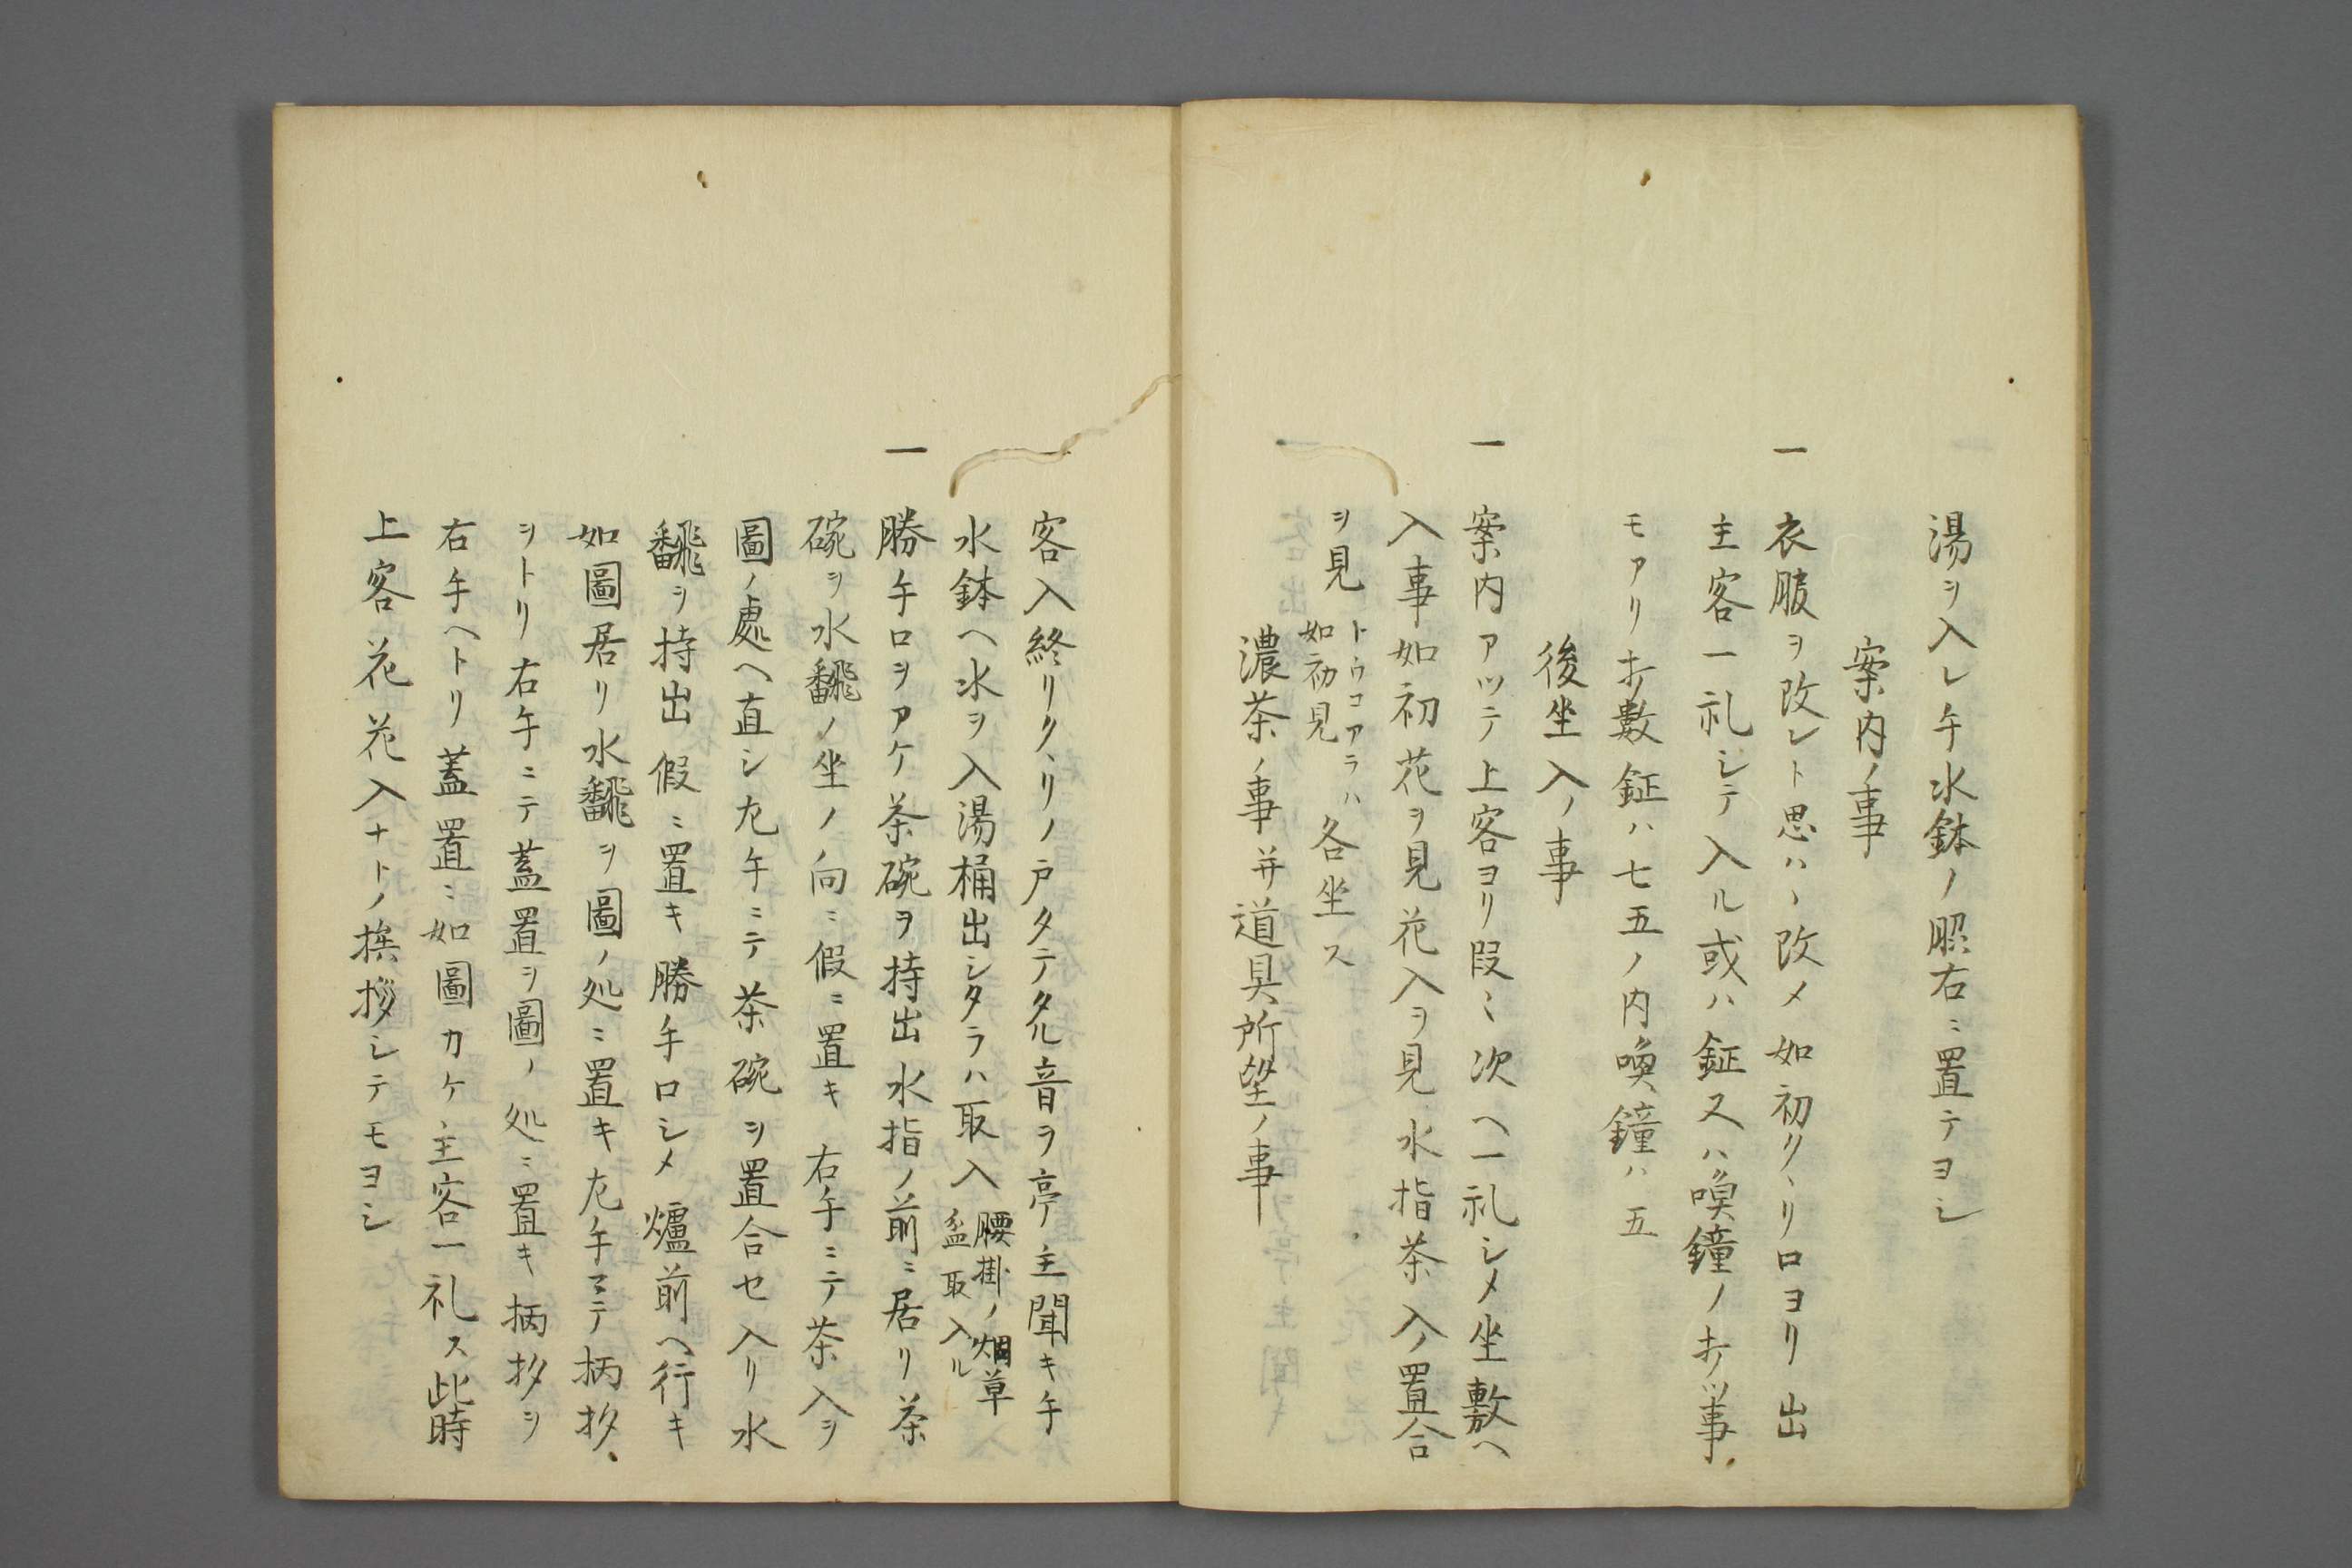 湯ヲ入レ手水鉢ノ照右ニ置テヨシ
案内ノ事
一 衣服ヲ改レト思ハヽ改メ如初クヽリ口ヨリ出
主客一礼シテ入ル或ハ鉦又ハ喚鐘ノ打事
モアリ打數鉦ハ七五ノ内喚鐘ハ五
後坐入ノ事
一 案内アツテ上客ヨリ段〻次ヘ一礼シメ坐敷ヘ
入事如初花ヲ見花入ヲ見水指茶入ノ置合
ヲ見
トウコアラハ
如初見
各坐ス
濃茶ノ事并道具所望ノ事
一 客入終リクヽリノ戸タテタル音ヲ亭主聞キ手
水鉢ヘ水ヲ入湯桶出シタラハ取入
腰掛ノ烟草
盆取入ル
一 勝手口ヲアケ茶碗ヲ持出水指ノ前ニ居リ茶
碗ヲ水飜ノ坐ノ向ニ假ニ置キ右手ニテ茶入ヲ
圖ノ處ヘ直シ左手ニテ茶碗ヲ置合セ入リ水
飜ヲ持出假ニ置キ勝手口シメ爐前ヘ行キ
如圖居リ水飜ヲ圖ノ処ニ置キ左手ニテ柄杓
ヲトリ右手ニテ蓋置ヲ圖ノ処ニ置キ柄杓ヲ
右手ヘトリ蓋置ニ如圖カケ主客一礼ス此時
上客花花入ナトノ挨拶シテモヨシ